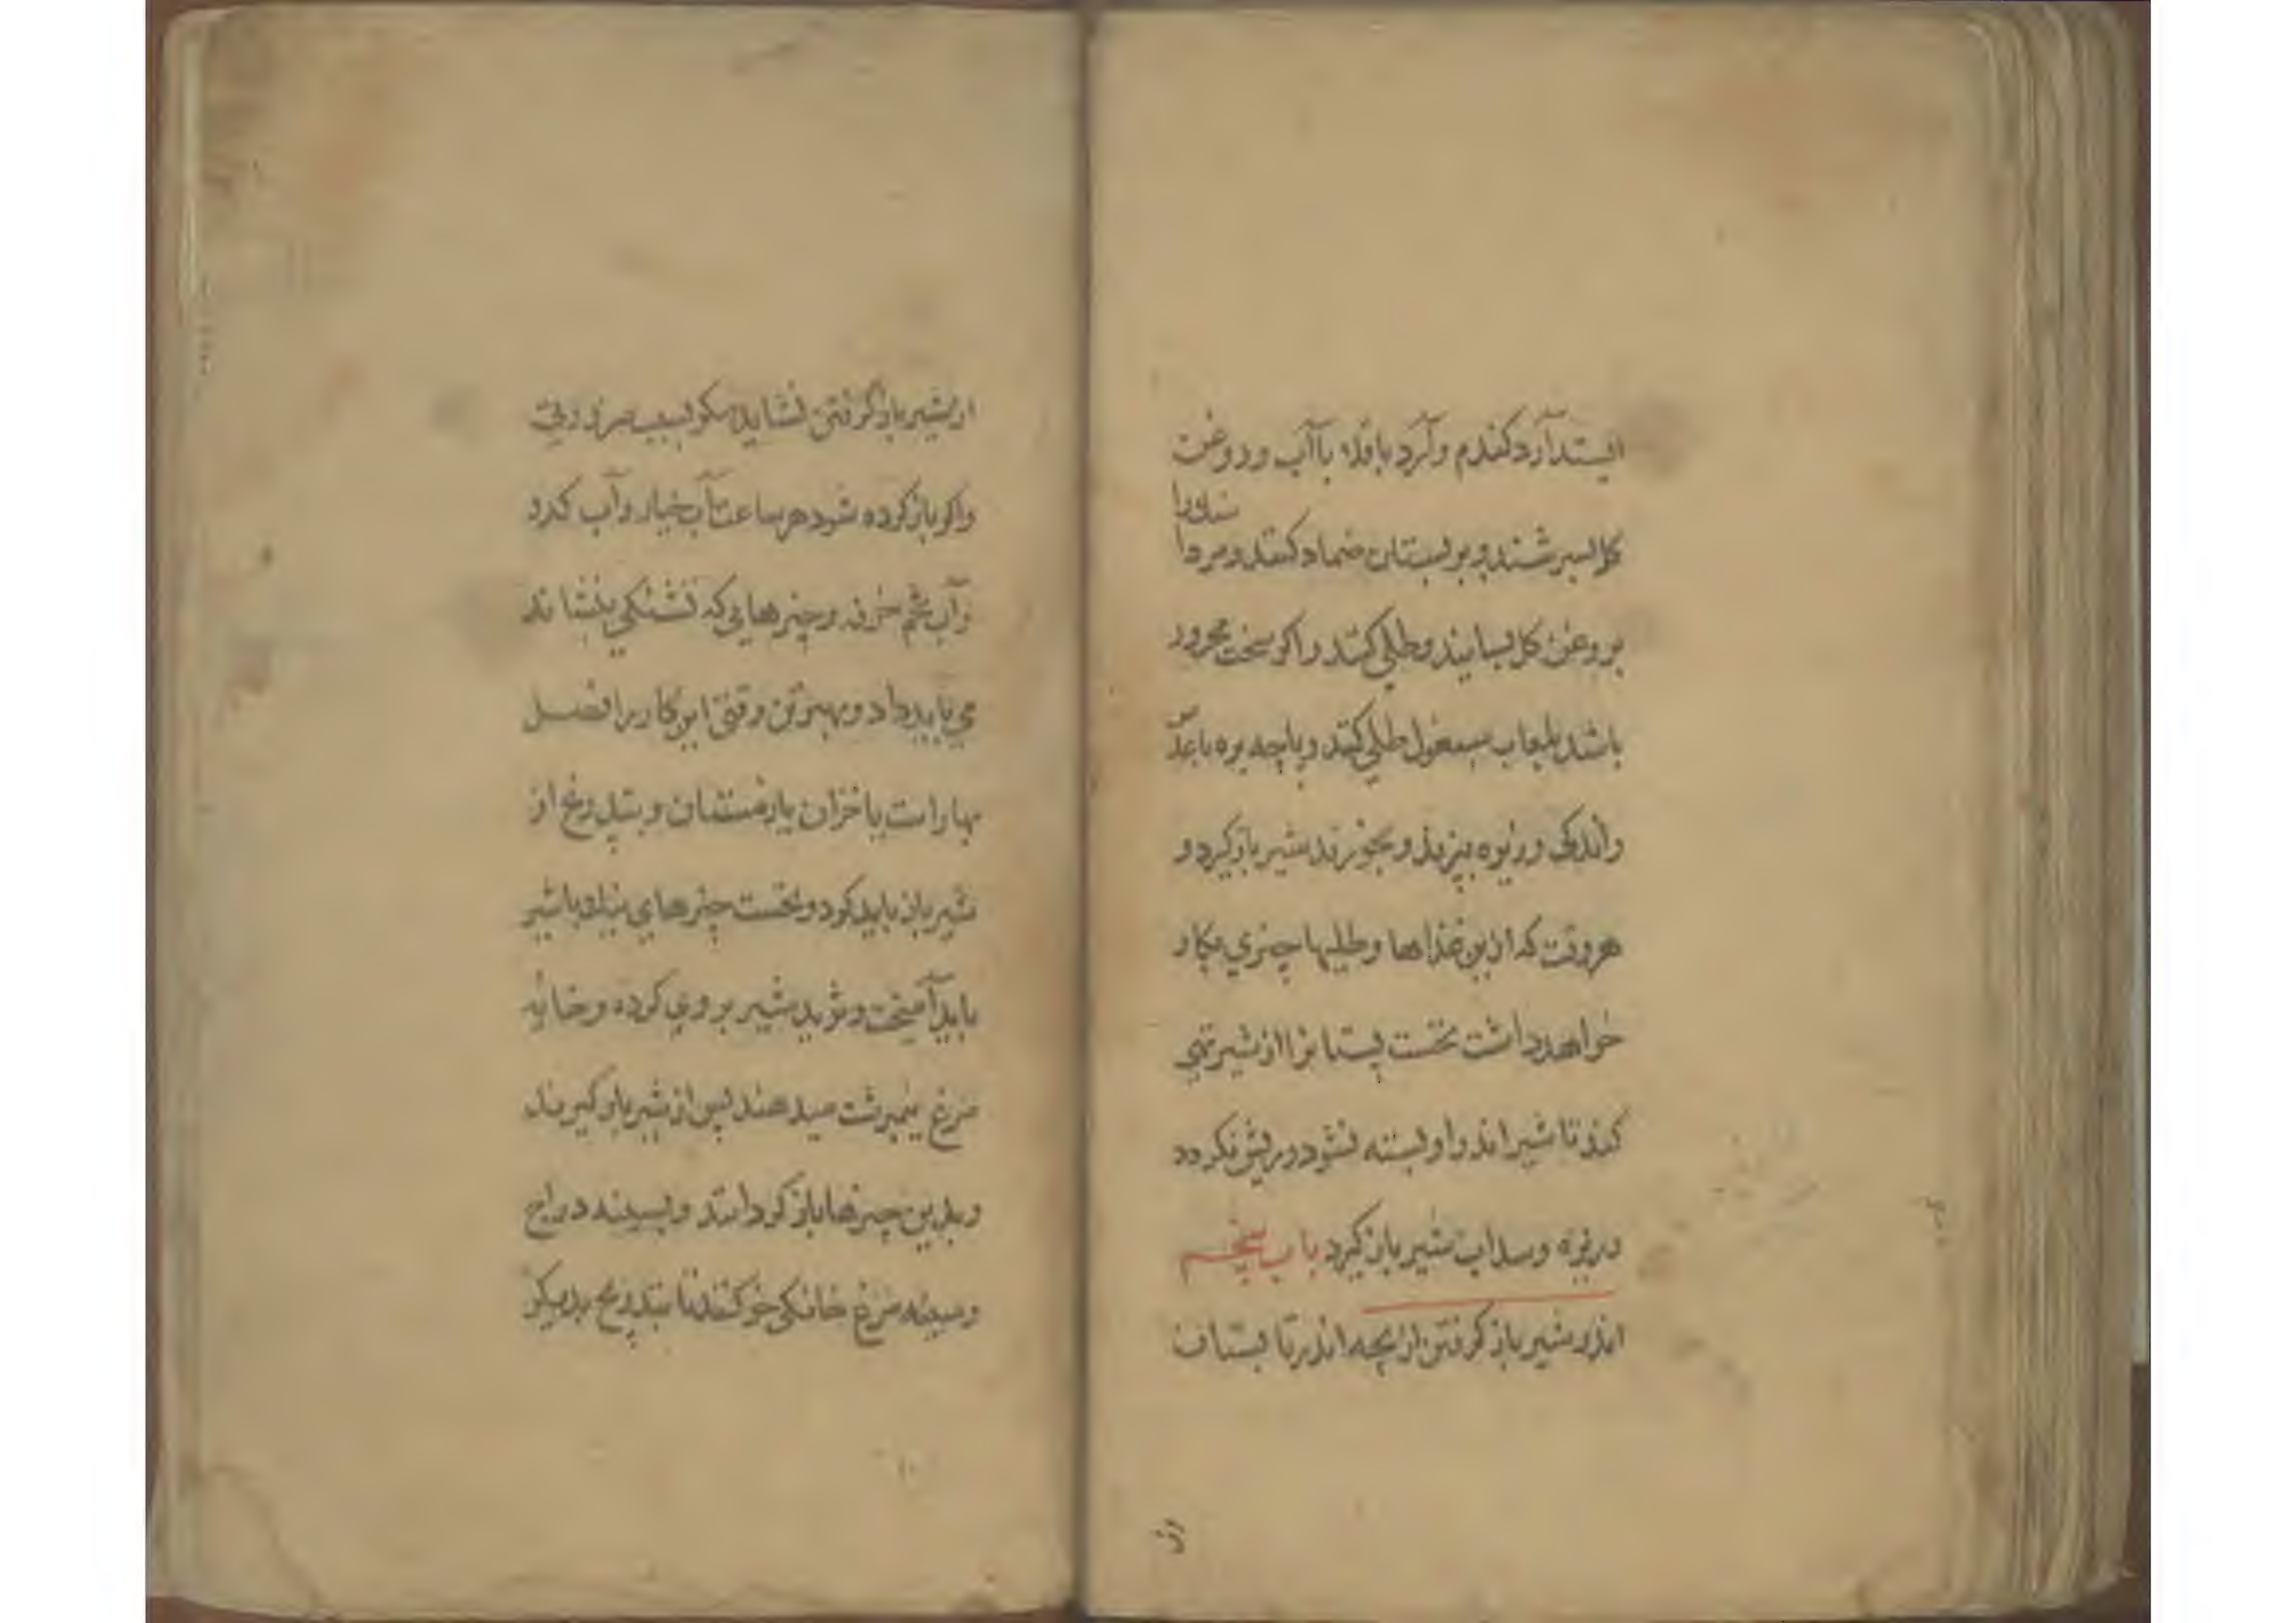 ایستد آرد کندم و آرد باقلا با آب و روغن
کل بسرشند و بر پستان ضماد کنند و مردا
سنک را
بروغن کل بسایند و طلی کنند و اکر سخت محرور
باشد بلعاب سبغول طلی کنند و پاچه بره با عدس
و اندکی زیره بپزند و بخورند شیر باز کیرد و
هر وقت که ازین غذاها و طلیها چیزی بکار
خواهد داشت نخست پستانرا از شیر تهی
کند تا شیر اندر او بسته نشود و ریش نکردد
و زیره و سداب شیر باز کیرد باب پنجم
اندر شیر باز کرفتن از بچه اندر تابستان
از
از شیر باز کرفتن نشاید مکر بسبب ضرورتی
و اکر باز کرده شود هر ساعت آب خیار و آب کدو
و آب تخم خرفه و چیزهایی که تشنکی بنشاند
می باید داد و بهترین وقتی این کار را فصل
بهار است یا خزان یا زمستان و بتدریج از
شیر باز باید کرد و نخست چیزهای با شیر
باید آمیخت و ثرید شیر بروی کرده و خایه
مرغ نیمبرشت میدهند پس از شیر باز کیرند
و بدین چیزها باز کردانند و بسینه دراج
و سینه مرغ خانکی خو کنند تا بتدریج بدیکر